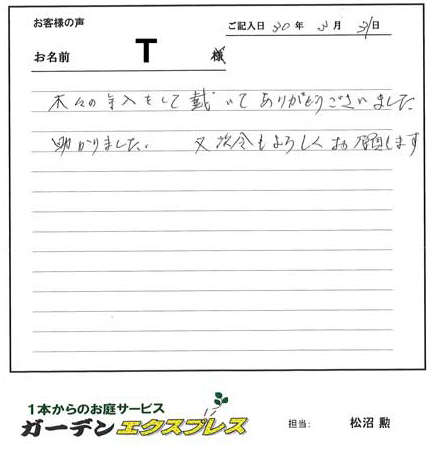 お客様の声
ご記入日 30年 3月 31日
お名前 T 様
木々の手入をして戴いてありがとうございました
助かりました。 又次会もよろしくお願します
1本からのお庭サービス
ガーデンエクスプレス
担当: 松沼 勲